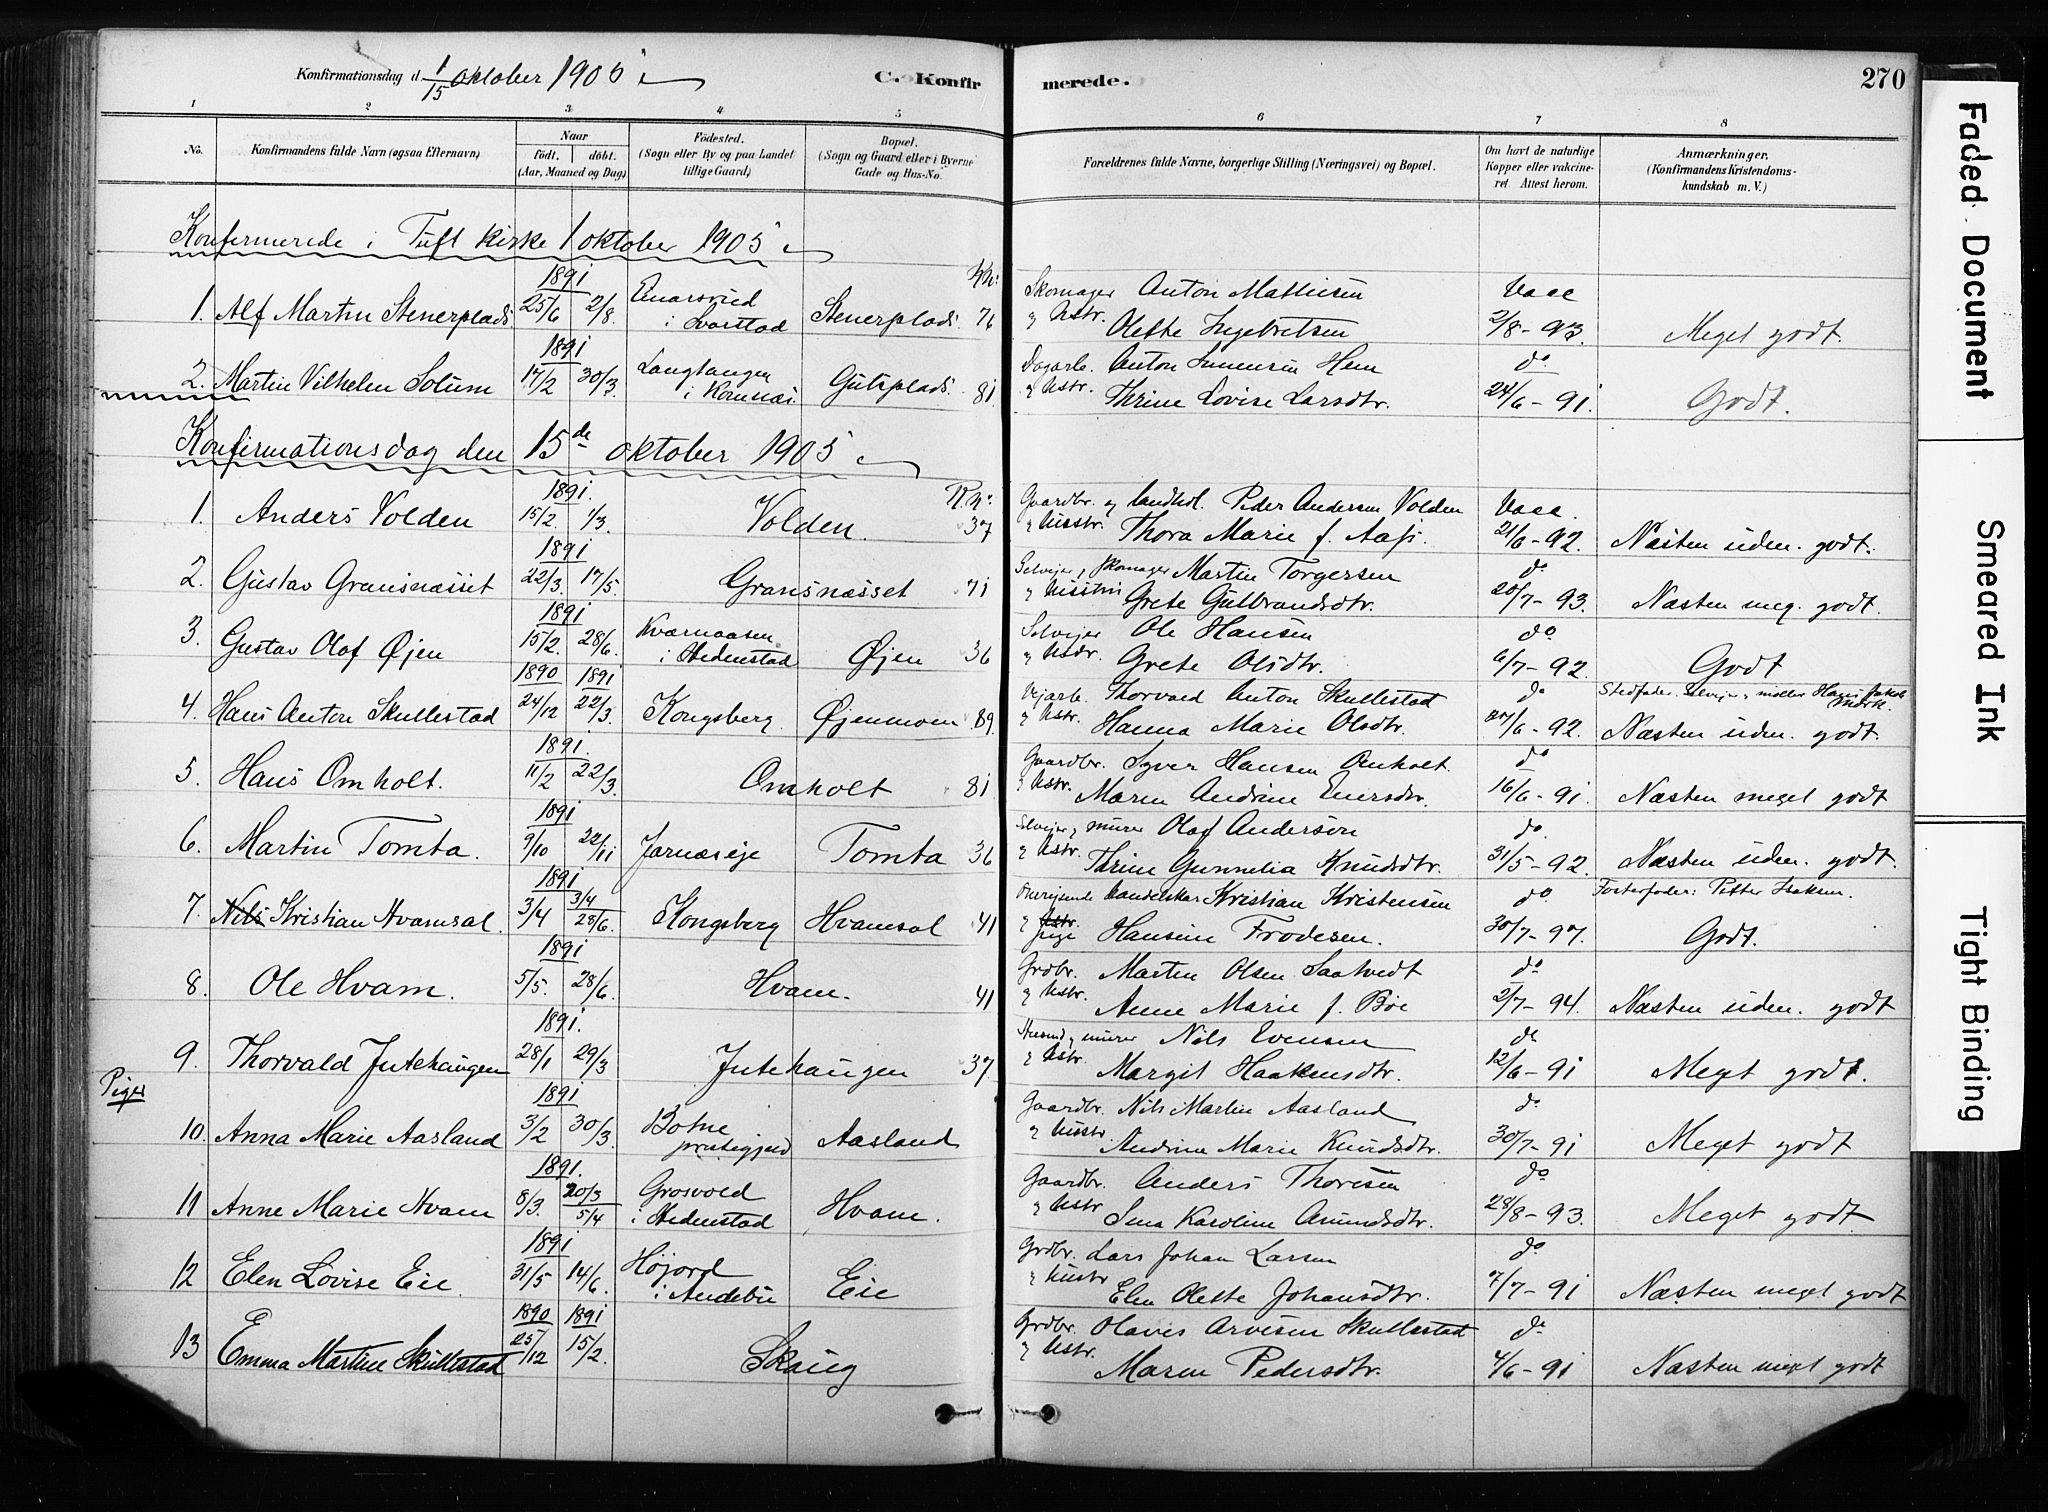 Konfirmationsdag d. 1/15 oktober 1905
C. Konfirmerede.
270
1 2 3 4 5 6 7 8
No.
Konfirmandens fulde Navn (ogsaa Efternavn)
Naar
födt. döbt.
(Aar, Maaned og Dag)
Födested.
(Sogn eller By og paa Landet
tillige Gaard)
Bopæl.
(Sogn og Gaard eller i Byerne
Gade og Hus-No.
Forældrenes fulde Navne, borgerlige Stilling (Næringsvei) og Bopæl.
Om havt de naturlige
Kopper eller vakcine-
ret. Attest herom.
Anmærkninger.
(Konfirmandens Kristendoms-
kundskab m. V.)
Konfirmerede i Tuft kirke 1 oktober 1905
1891
Skomager Anton Mathisen Vacc
1. Alf Martin Stenerplads 25/6 2/8. i Svarstad Stenerplads 76
g Hstr. Olette Ingebretsen 2/8-93. Meget godt.
1891
Dagarb. Anton Hem do
2. Martin Vilhelm Solum 17/2 30/3. Langtangen 81
g Hstr. Thrine Lovise Larsdtr. 24/6-91. Godt.
Konfirmationsdag den 15de oktober 1905
1891. R.N:
Gaardbr. og landhdl. Peder Andersen Volden Vacc.
1. Anders Volden 15/2. 1/3. Volden. 37
g Husstr. Thora Marie f. Aas. 21/6-92. Næsten uden. godt.
1891
Selveier, skomager Martin Torgersen do
2. Gustav Gransnæsset 22/3. 17/5. Gransnæsset 71
g Grete Gulbrandsdtr. 20/7-93. Næsten meg. godt.
1891
Selveier Ole Hansen do
3. Gustav Olaf Øjen 15/2. 28/6. Kvernaasen i Hedenstad Øjen 36
g Hstr. Grete Olsdtr. 6/7-92. Godt
1890 1891
Thorvald Anton Skullestad do Stedfader. Selveier, møller Hans Jakob Mørk.
4. Hans Anton Skullestad 24/12 22/3. Kongsberg Øjenmoen 89.
g Hstr. Hanna Marie Olsdtr. 27/6-92. Næsten uden. godt.
1891.
Gaardbr. Syver Hansen Omholt. do
5. Hans Omholt. 11/2 22/3. Omholt 81
g Hstr. Maren Andrine Enersdtr. 16/6-91. Næsten meget godt
1891
Selveier, murer Olaf Anderson do.
6. Martin Tomta. 9/10 22/11 Jarnæseje Tomta 36
g Hstr. Thrine Gunnelia Knudsdtr. 31/5-92. Næsten uden. godt.
1891
Omreisende handelskar Kristian Kristensen do Fosterfader: Petter Isaksen.
7. Nils Kristian Hvamsal. 3/4 3/4 28/6. Kongsberg Hvamsal 41
g Hstr. pige Hansine Frodesen. 30/7-97. Godt.
1891
Grdbr. Martin Olsen Saatvedt do
8. Ole Hvam. 5/5. 28/6. Hvam. 41
g Hstr. Anne Marie f. Bøe 2/7-94. Næsten uden. godt
1891.
Husmd, murer Nils Evensen do
9. Thorvald Jutehaugen 28/1 29/3 Jutehaugen 37
g Hstr. Margit Haakensdtr. 12/6-91 Meget godt.
Piger
1891
Gaardbr. Nils Martin Aasland do
10. Anna Marie Aasland 3/2 30/3. Botne præstegjeld Aasland
g Husstr. Andrine Marie Knudsdtr. 30/7-91 Meget godt
1891.
Gaardbr. Anders Thoresen do
11 Anne Marie Hvam 8/3. 20/3 5/4 Grosvold i Hedenstad Hvam.
g Hstr. Lena Karoline Amundsdtr. 28/8-93. Meget godt
1891
Grdbr. Lars Johan Larsen do
12 Elen Lovise Eie. 31/5 14/6. Højord i Andebu Eie
g Hustr. Elen Olette Johansdtr. 7/7-91 Næsten meget godt
1890 1891
Grdbr. Olaves Arvesen Skullestad do
13 Emma Martine Skullestad 25/12 15/2. Skaug
g Hstr. Maren Pedersdtr. 4/6-91 Næsten meget godt
Faded Document
Smeared Ink
Tight Binding